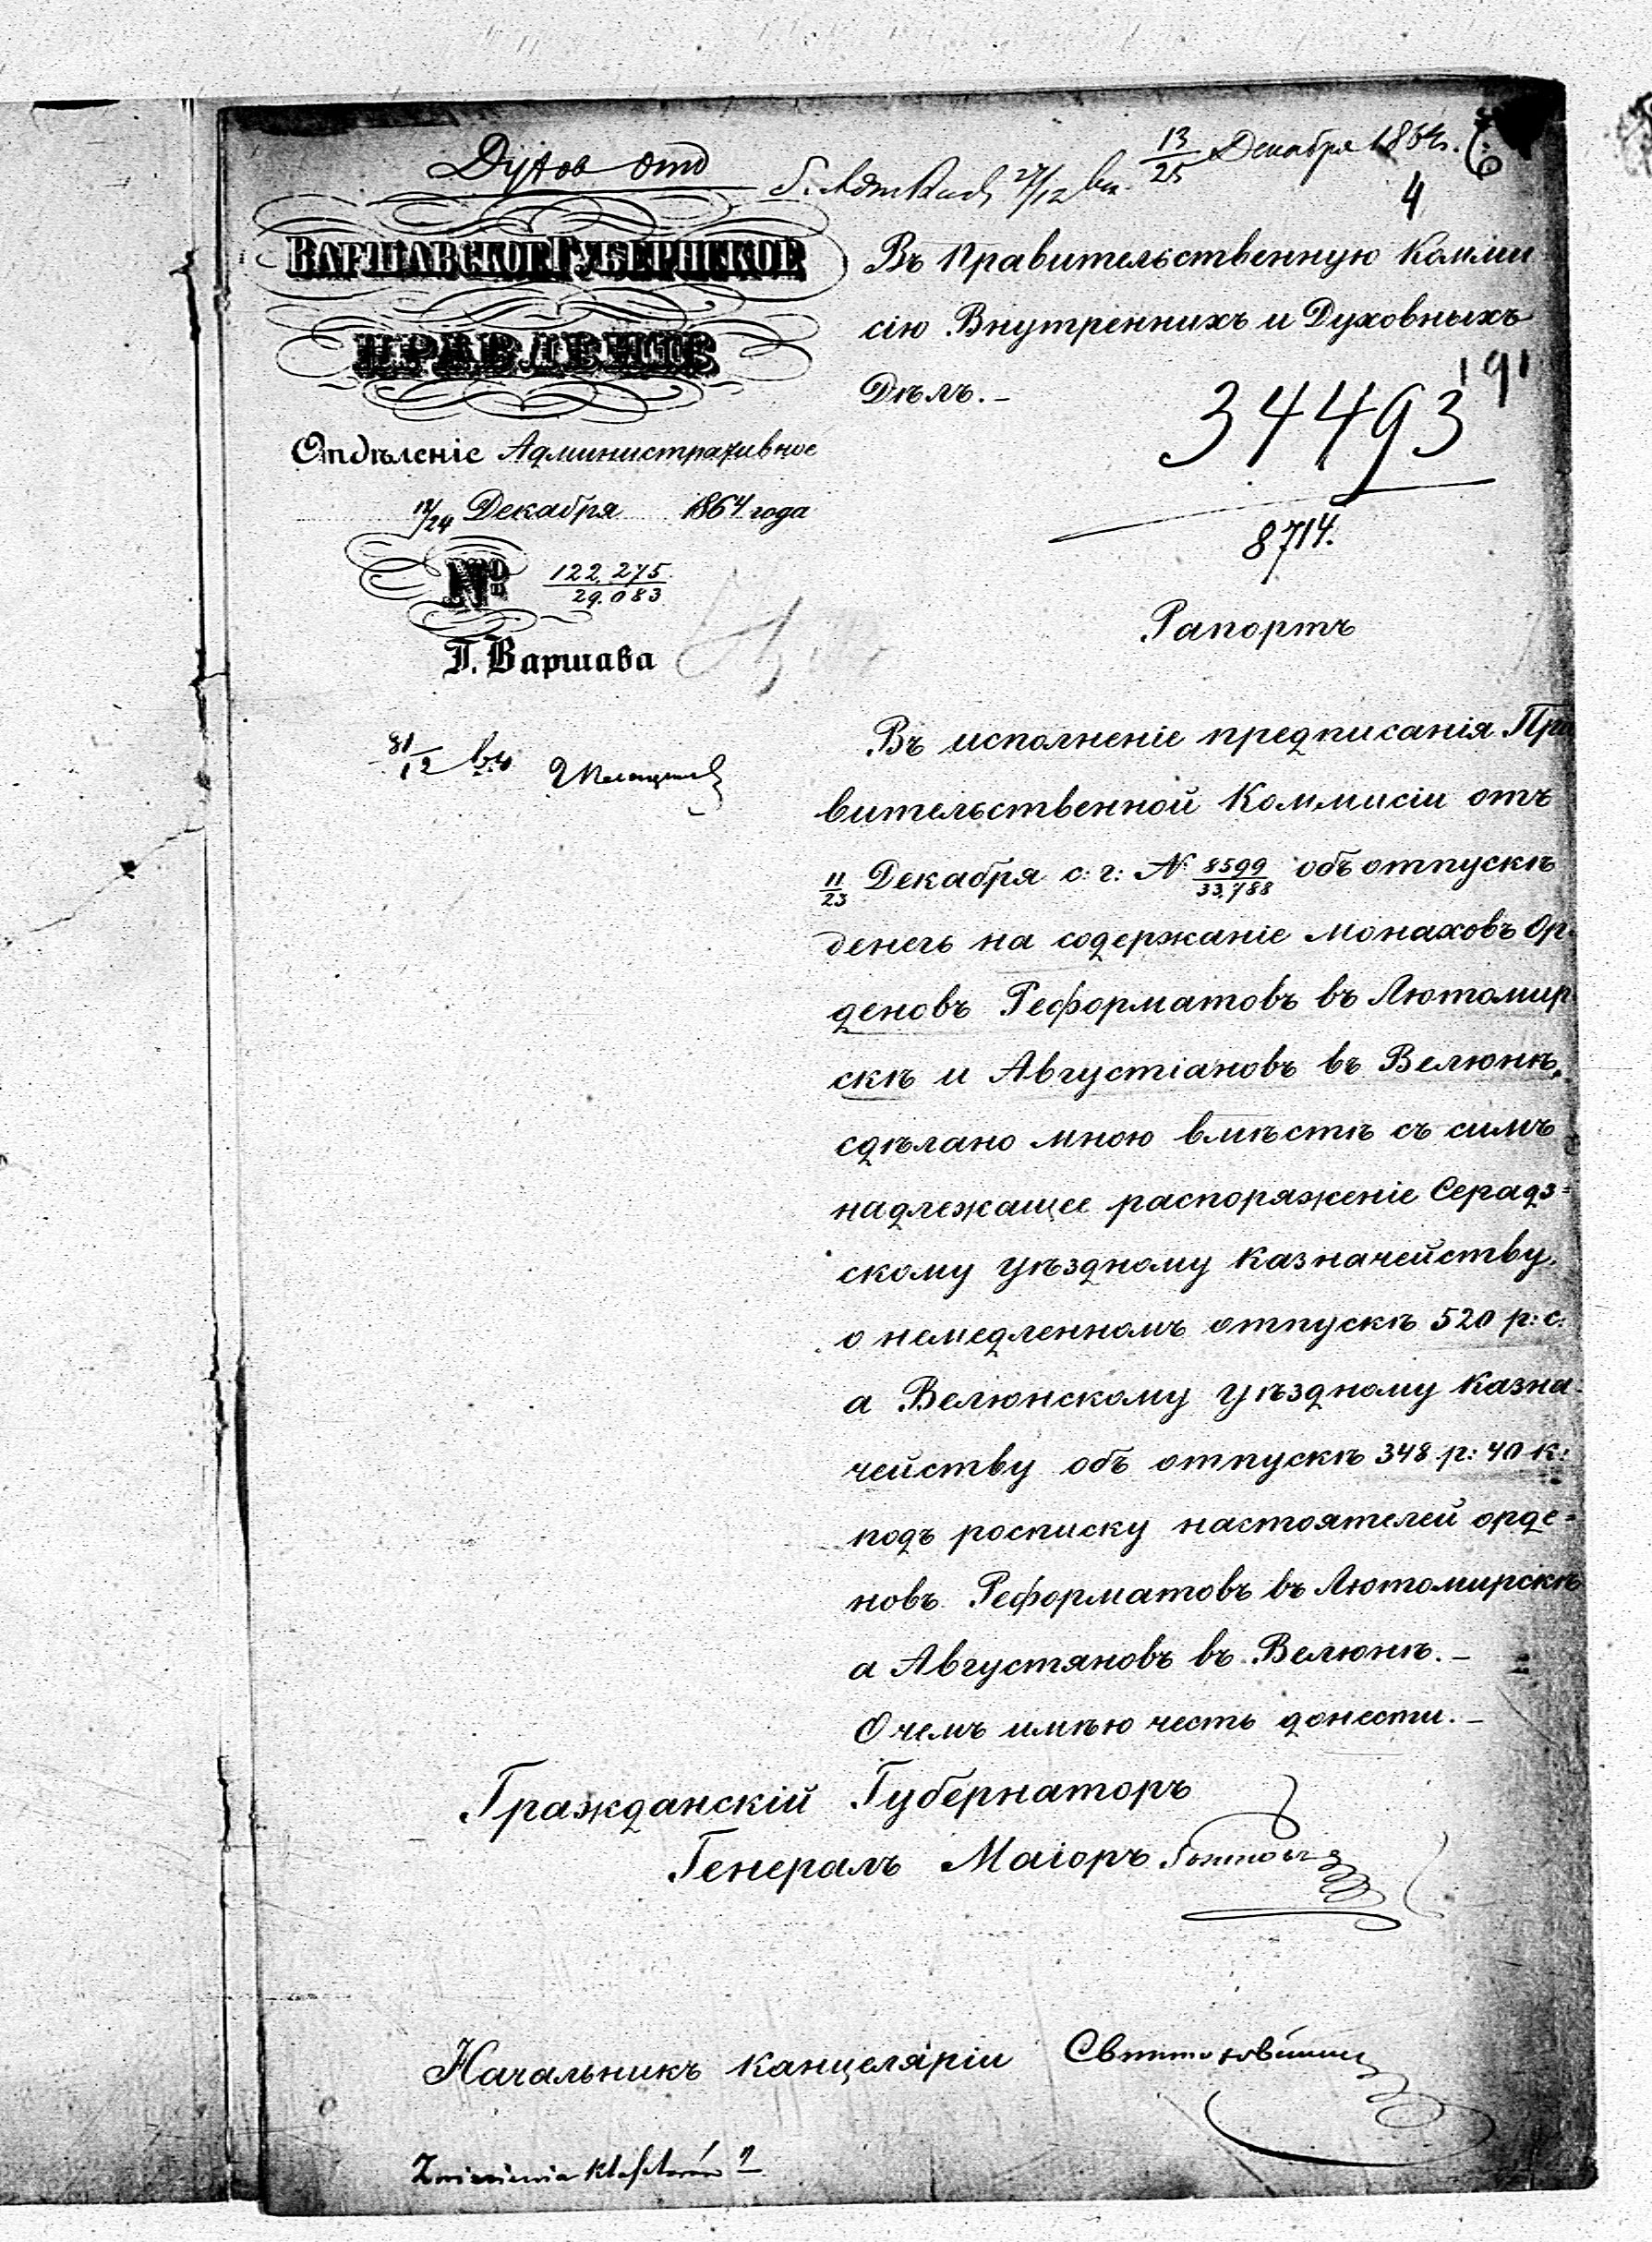 Духов отд
27/12
13/25 Декабря 1864 г.
4
ВАРШАВСКОЕ ГУБЕРНСКОЕ
ПРАВЛЕНІЕ
Отдѣленіе Административное
12/24 Декабря 1864 года
№ 122,275/29.083
Г. Варшава
31/12
Въ Правительственную Комми
сію Внутреннихъ и Духовныхъ
Дѣлъ.–
191
34493
8714.
Рапортъ
Въ исполненіе предписанія Пра
вительственной Коммисіи отъ
11/23 Декабря с: г: N 8599/33,788 объ отпускѣ
денегъ на содержаніе Монаховъ Ор
деновъ Реформатовъ въ Лютомир
скѣ и Августіановъ въ Велюнѣ,
сдѣлано мною вмѣстѣ съ симъ
надлежащее распоряженіе Серадз=
скому Уѣздному Казначейству,
о немедленномъ отпускѣ 520 р: с:
а Велюнскому Уѣздному Казна
чейству объ отпускѣ 348 р: 40 к:
подъ росписку настоятелей орде=
новъ Реформатовъ въ Лютомирскѣ
а Августяновъ въ Велюнѣ.–
О чемъ имѣю честь донести.–
Гражданскій Губернаторъ
Генералъ Маіоръ
Начальникъ Канцеляріи